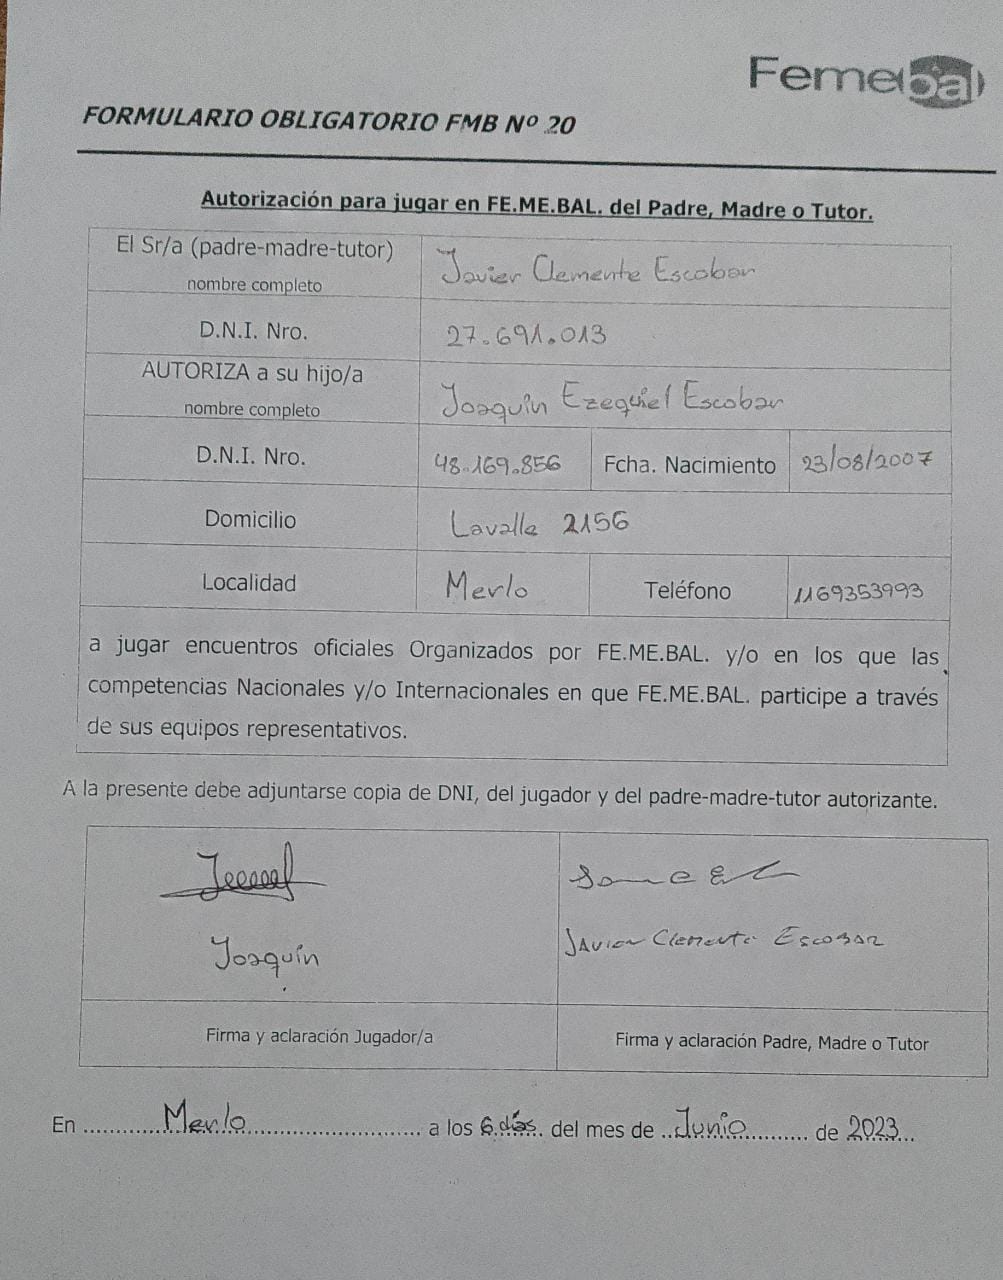 Femebal
FORMULARIO OBLIGATORIO FMB Nº 20
Autorización para jugar en FE.ME.BAL. del Padre, Madre o Tutor.
El Sr/a (padre-madre-tutor)
nombre completo
Javier Clemente Escobar
D.N.I. Nro.
27.691.013
AUTORIZA a su hijo/a
nombre completo
Joaquín Ezequiel Escobar
D.N.I. Nro.
48.169.856
Fcha. Nacimiento
23/08/2007
Domicilio
Lavalle 2156
Localidad
Merlo
Teléfono
1169353993
a jugar encuentros oficiales Organizados por FE.ME.BAL. y/o en los que las
competencias Nacionales y/o Internacionales en que FE.ME.BAL. participe a través
de sus equipos representativos.
A la presente debe adjuntarse copia de DNI, del jugador y del padre-madre-tutor autorizante.
Joaquín
Javier Clemente Escobar
Firma y aclaración Jugador/a
Firma y aclaración Padre, Madre o Tutor
En Merlo a los 6 días del mes de Junio de 2023